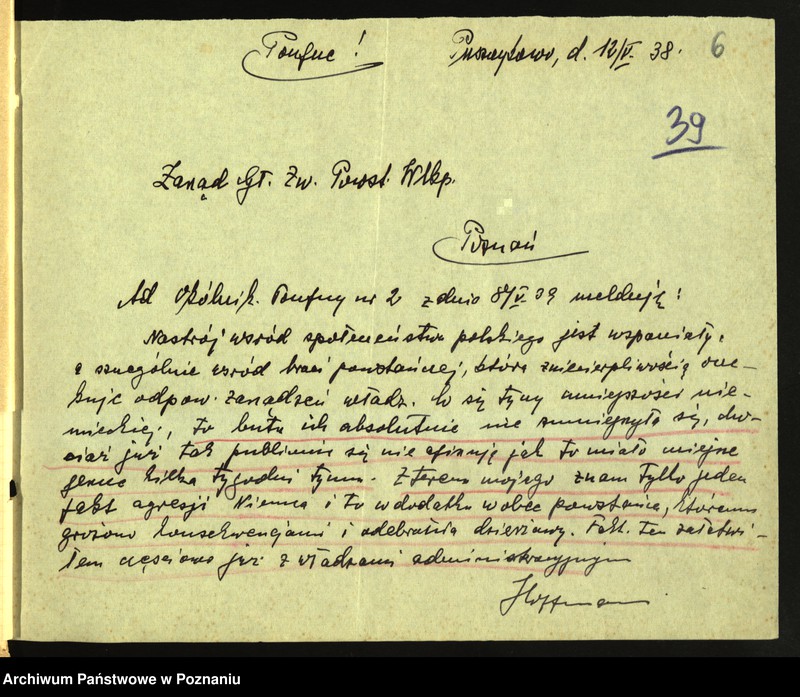 Poufne! Puszczykowo, d. 12/V. 38. 6
39
Zarząd Gł. Zw. Powst. Wlkp.
Poznań
Ad Okólnik. Poufny nr 2 z dnia 8/V. 39 melduję:
Nastrój wśród społeczeństwa polskiego jest wspaniały,
a szczególnie wśród braci powstańczej, która z niecierpliwością ocze-
kuje odpow. zarządzeń władz. Co się tyczy mniejszości nie-
mieckiej, to buta ich absolutnie nie zmniejszyła się, cho-
ciaż już tak publicznie się nie afiszują jak to miało miejsce
jeszcze kilka tygodni temu. Z terenu mojego znam tylko jeden
fakt agresji Niemca i to w dodatku wobec powstańca, któremu
grożono konsekwencjami i odebraniem dzierżawy. Fakt ten załatwi-
łem częściowo już z władzami administracyjnymi
Hoffmann
Archiwum Państwowe w Poznaniu